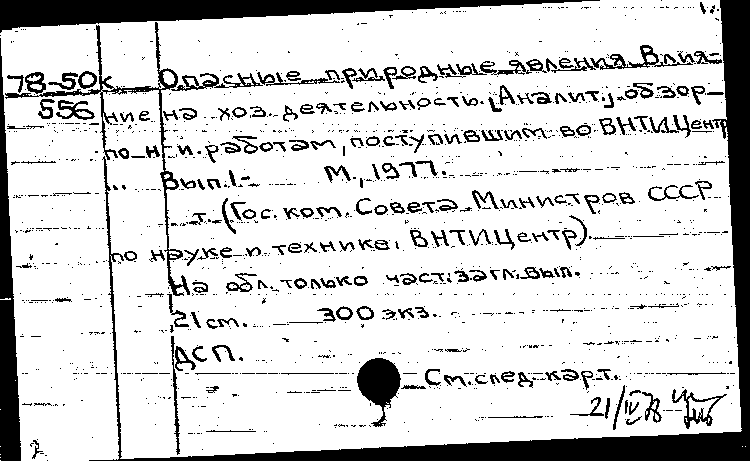 78-50к Опасные природные явления Влия-
556 ние на хоз. деятельность. [Аналит.] обзор
по н.-и. работам, поступившим во ВНТИЦентр
... Вып. 1- М., 1977.
т. (Гос. ком. Совета Министров СССР
по науке и технике. ВНТИЦентр).
На обл. только част. загл. вып.
21 см. 300 экз.
ДСП.
См. след. карт.
21/IV 78